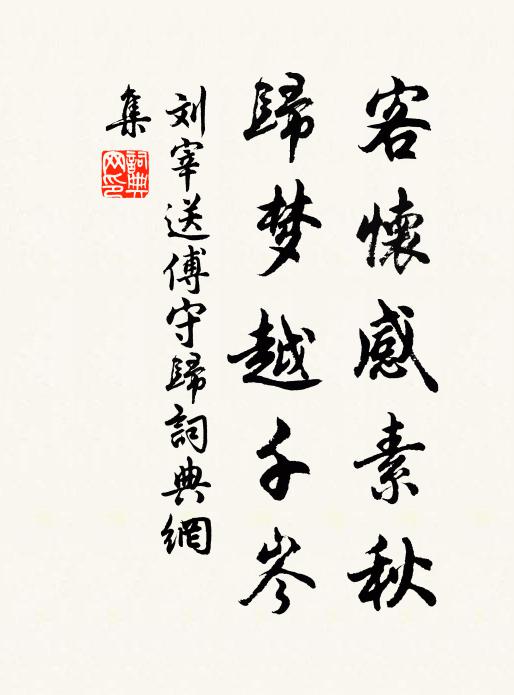 客懷感素秋
歸梦越千岑
刘宰送傅守歸詞典網
集
詞典
网印